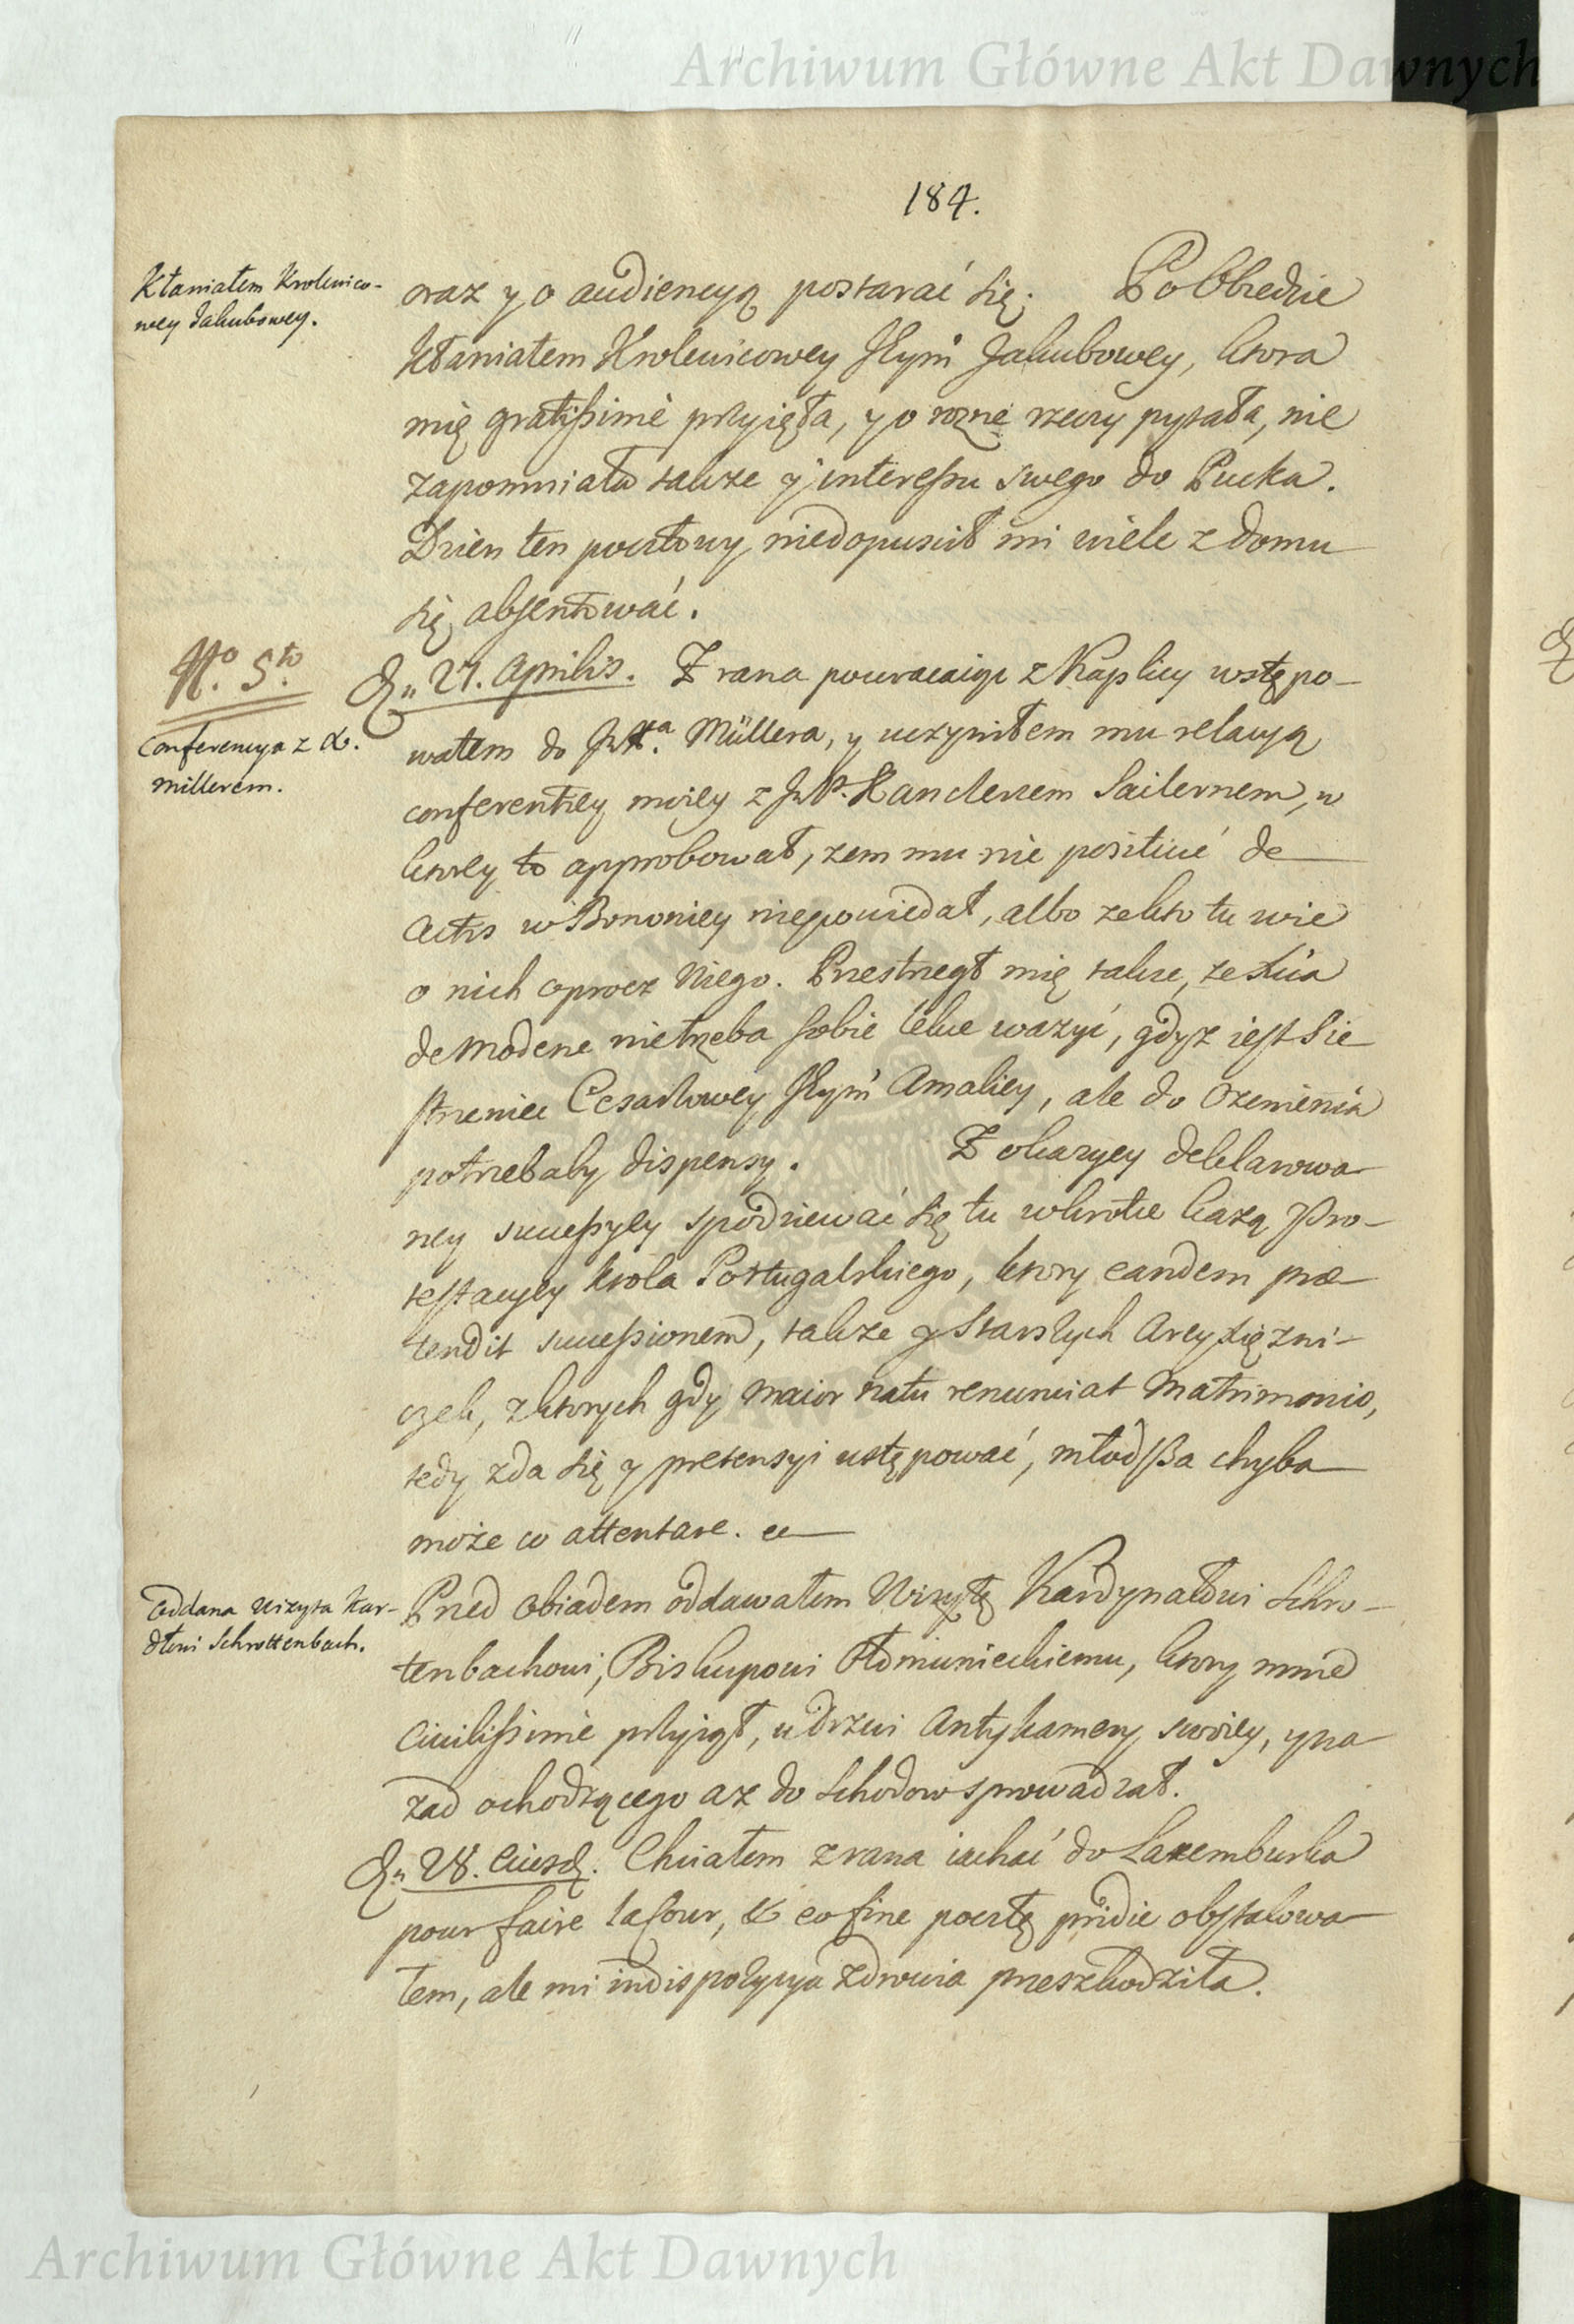 Archiwum Główne Akt Dawnych
184.
Kłaniałem Krolewico-
wey Jakubowey.
oraz y o audiencyą postarać się. Po Obiedzie
kłaniałem Krolewicowey JKym̃ Jakubowey, ktora
mię gratissimè przyięła, y o rozne rzeczy pytała, nie
zapomniała także y interessu swego do Pucka.
Dzien ten pocztowy niedopuscił mi wiele z domu
się absentować.
No. 5to.
D. 27. Aprilis. Z rana powracaiąc z Kaplicy wstępo-
Conferencya z X.
Millerem.
wałem do JX.a Müllera, y uczyniłem mu relacyą
conferentiey moiey z JWP. Kanclerzem Sailernem, w
ktorey to approbował, zem mu nie positivè de
Actis w Bononiey niepowiedał, albo ze kto tu wie
o nich oprocz Niego. Przestrzegł mię takze, ze Xcia
de Modene nietrzeba sobie lekce wazyć, gdyz iest Sie-
strzeniec Cesarzowey JKym̃ Amaliey, ale do Ozenienia
potrzebaby dispensy. Z okazyey deklarowa-
ney successyey spodziewać się tu wkrotce kazą Pro-
testacyey krola Portugalskiego, ktory eandem præ-
tendit successionem, takze y Starszych Arcyxięzni-
czek, z ktorych gdy maior natu renunciat Matrimonio,
tedy zda się y pretensyi ustępować, młodsza chyba
może co attentare.
Oddana wizyta Kar-
dłowi Schrottenbach.
Przed obiadem oddawałem Wizytę Kardynałowi Schro-
tenbachowi, Biskupowi Ołomunieckiemu, ktory mnie
civilissimè przyiął, u drzwi Antykamery swoiey, y na-
zad ochodzącego az do Schodow sprowadzał.
D. 28. eiusd. Chciałem z rana iachać do Laxemburka
pour faire la Cour, & eo fine pocztę pridie obstalowa-
łem, ale mi indispozycya zdrowia przeszkodziła.
Archiwum Główne Akt Dawnych